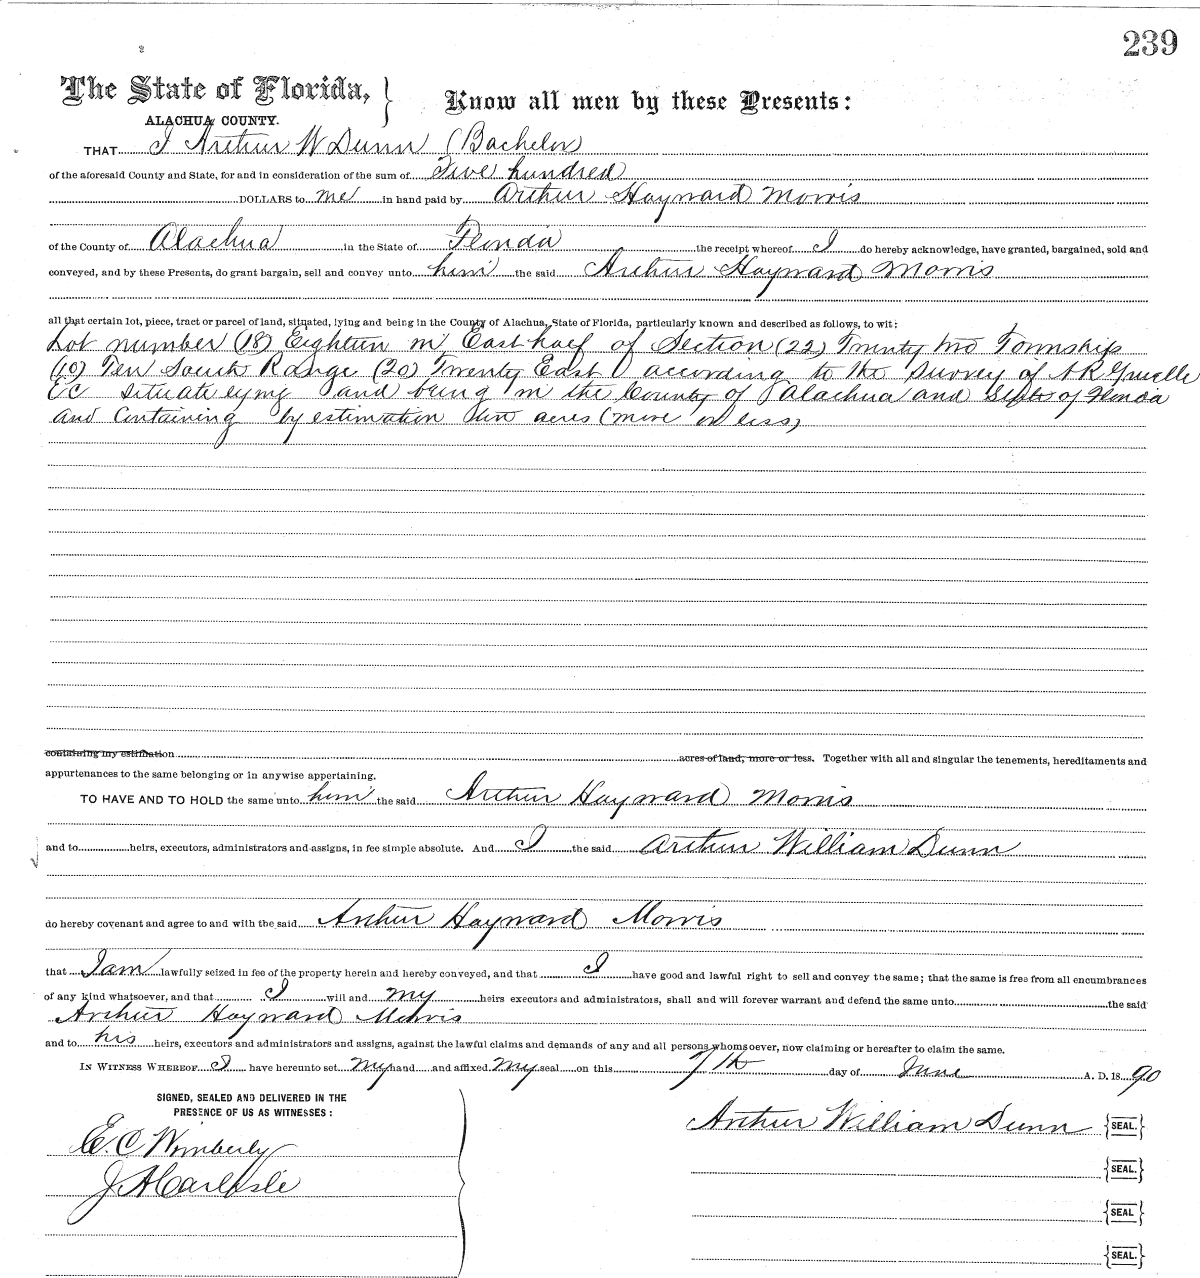 239
The State of Florida, } Know all men by these Presents:
ALACHUA COUNTY.
THAT I Arthur W Dunn (Bachelor
of the aforesaid County and State, for and in consideration of the sum of Five hundred
DOLLARS to me in hand paid by Arthur Hayward Morris
of the County of Alachua in the State of Florida the receipt whereof I do hereby acknowledge, have granted, bargained, sold and
conveyed, and by these Presents, do grant bargain, sell and convey unto him the said Arthur Hayward Morris
all that certain lot, piece, tract or parcel of land, situated, lying and being in the County of Alachua, State of Florida, particularly known and described as follows, to wit:
Lot number (18) Eighteen in East half of Section (22) Twenty two Township
(10) Ten South Range (20) Twenty East according to the Survey of A R
Situate lying and being in the County of Alachua and State of Florida
and Containing by estimation acres (more or less)
containing my estimation acres of land, more or less. Together with all and singular the tenements, hereditaments and
appurtenances to the same belonging or in anywise appertaining.
TO HAVE AND TO HOLD the same unto him the said Arthur Hayward Morris
and to heirs, executors, administrators and assigns, in fee simple absolute. And I the said Arthur William Dunn
do hereby covenant and agree to and with the said Arthur Hayward Morris
that I am lawfully seized in fee of the property herein and hereby conveyed, and that I have good and lawful right to sell and convey the same; that the same is free from all encumbrances
of any kind whatsoever, and that I will and my heirs executors and administrators, shall and will forever warrant and defend the same unto the said
Arthur Hayward Morris
and to his heirs, executors and administrators and assigns, against the lawful claims and demands of any and all persons whomsoever, now claiming or hereafter to claim the same.
IN WITNESS WHEREOF I have hereunto set my hand and affixed my seal on this 7th day of June A. D. 18 90
SIGNED, SEALED AND DELIVERED IN THE
PRESENCE OF US AS WITNESSES:
Arthur William Dunn {SEAL.}
E. C Wimberly
{SEAL.}
J A Carlisle
{SEAL}
{SEAL.}